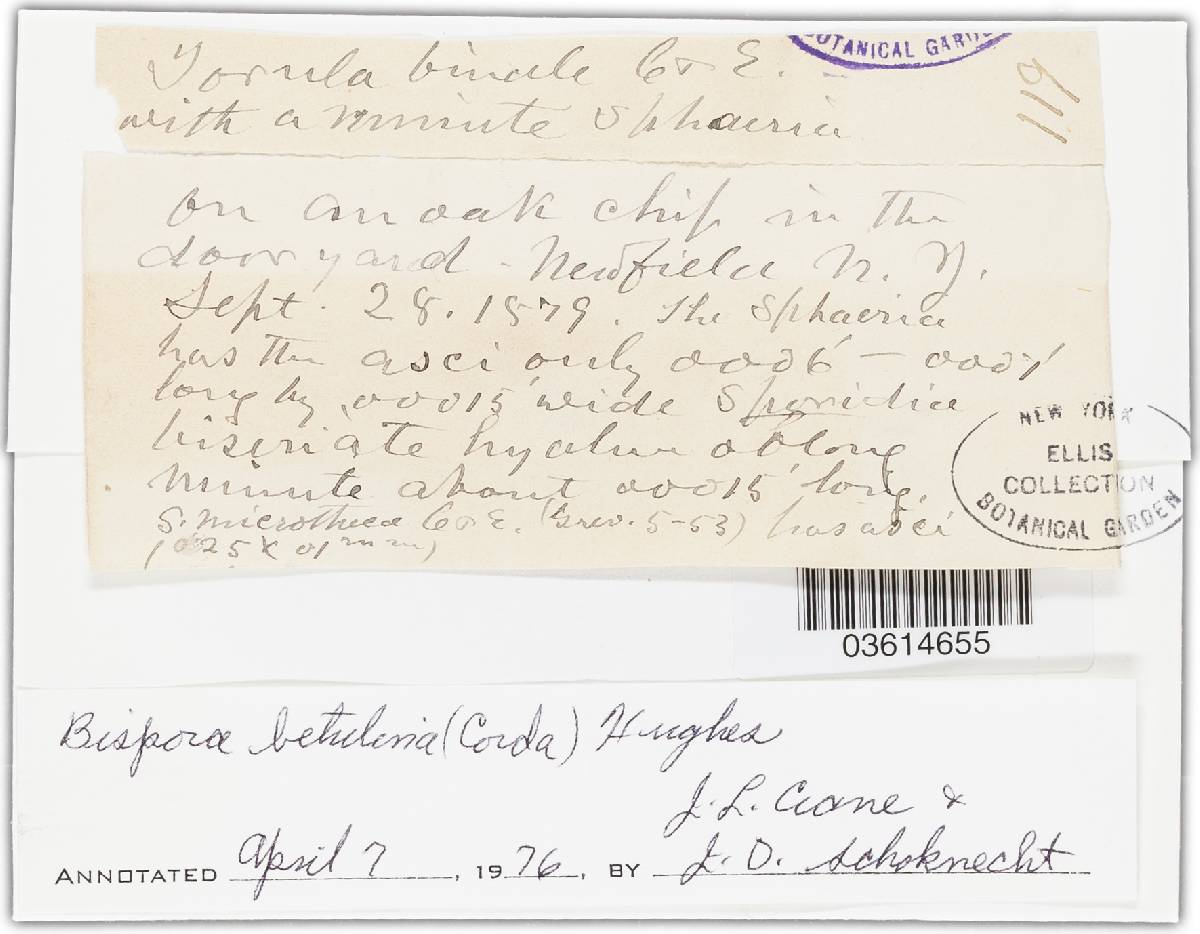 Torula binale C & E.
with a minute Sphaeria
BOTANICAL GARDE
119
on an oak chip in the
door yard - Newfield N. Y.
Sept. 28. 1879. The Sphaeria
has the asci only 0006 - 0007
long by .00015 wide Sporidia
biseriate hyaline oblong
minute about 00015 long.
S. microtheca C & E. (Grev. 5-53) has asci
(025 x 01 mm)
NEW YORK
ELLIS
COLLECTION
BOTANICAL GARDEN
03614655
Bispora betulina (Corda) Hughes
J. L. Crane &
ANNOTATED April 7, 1976, BY J. D. Schoknecht